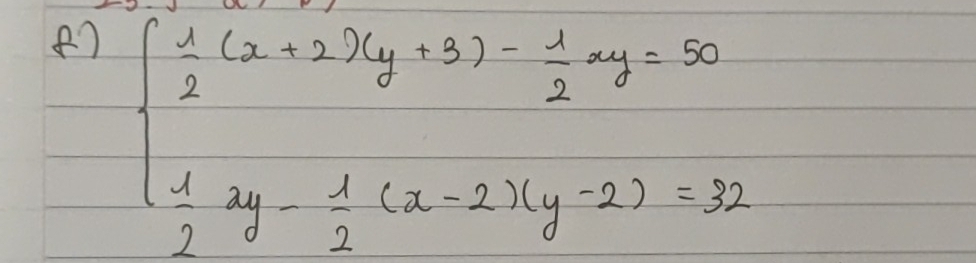 f) { 1/2 (x + 2)(y + 3) - 1/2 xy = 50
1/2 xy - 1/2 (x - 2)(y - 2) = 32